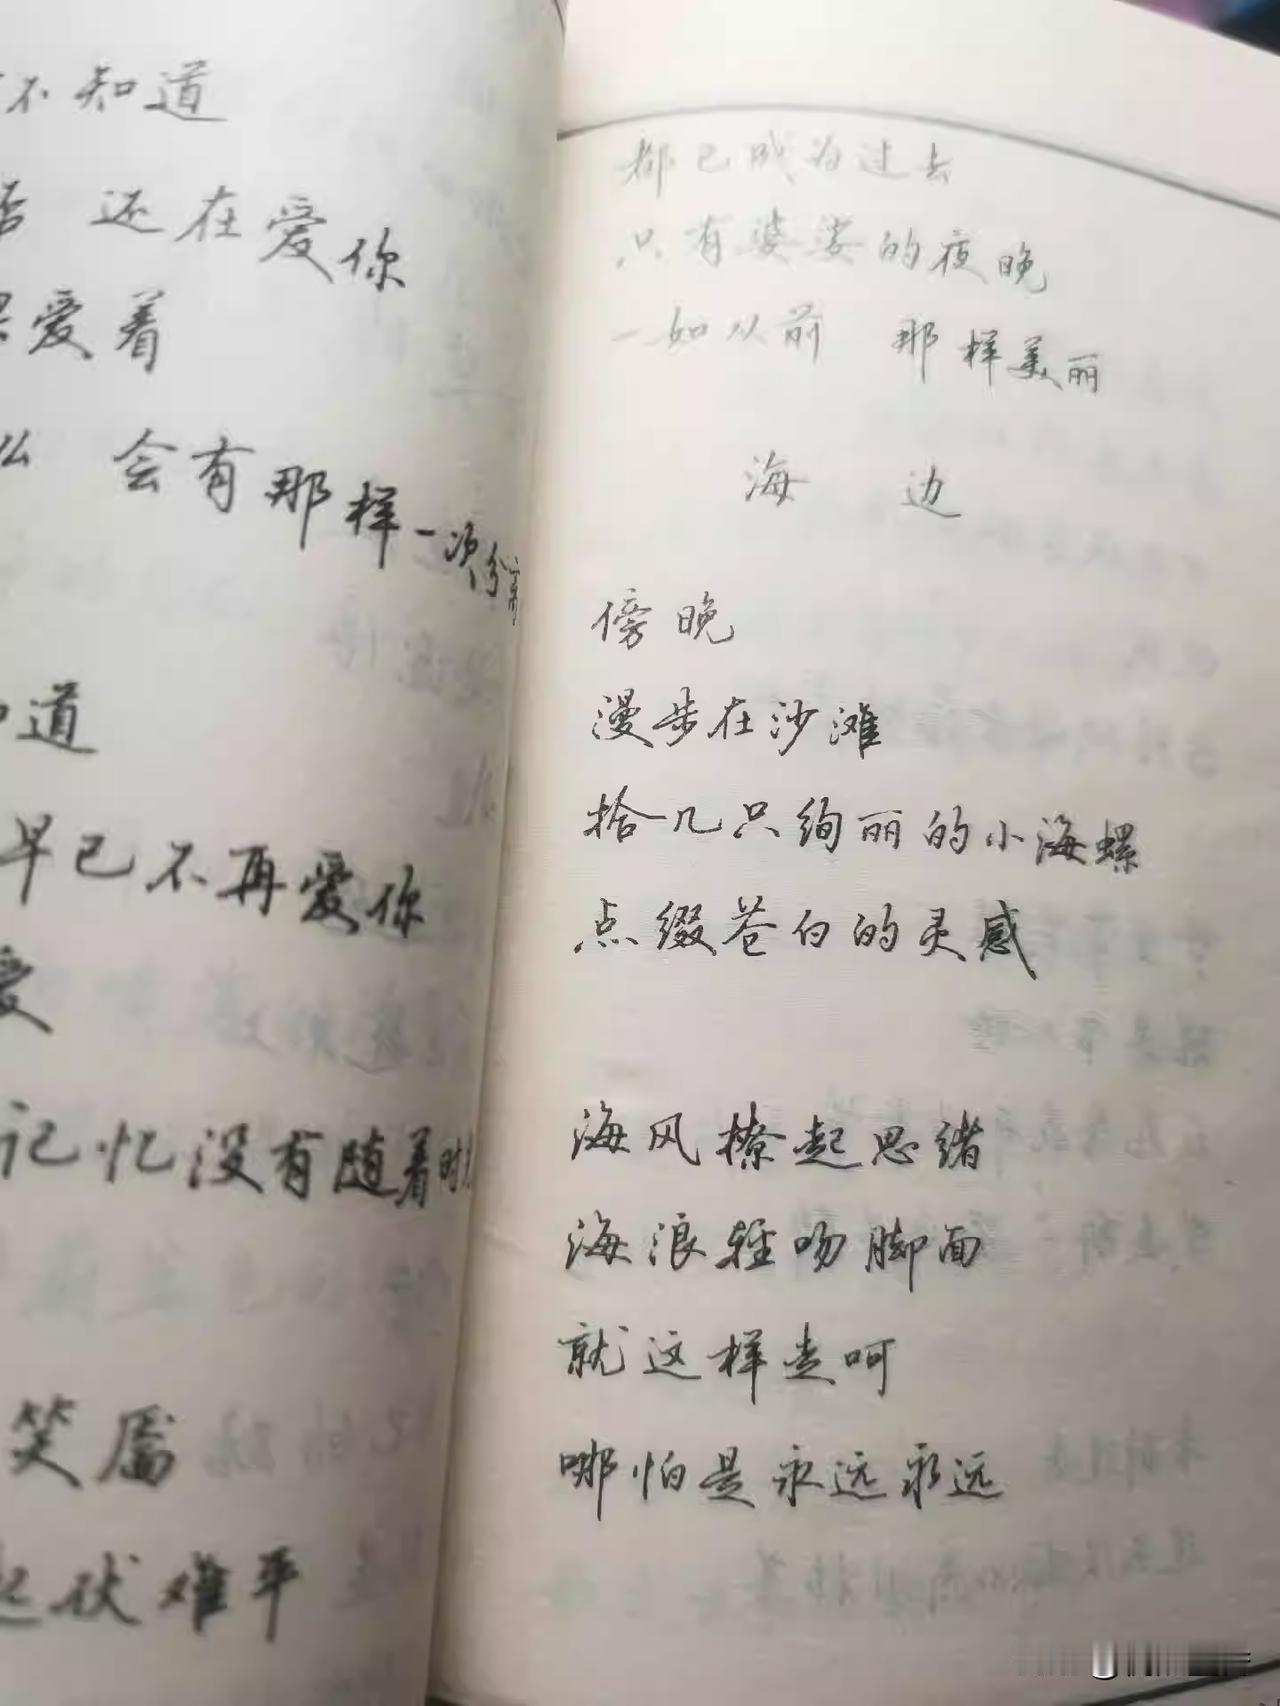 不知道
还在爱你
爱着
么 会有那样一次分离
知道
早已不再爱你
爱
记忆没有随着时
笑靥
起伏难平
都已成为过去
只有婆娑的夜晚
一如从前 那样美丽
海 边
傍晚
漫步在沙滩
拾几只绚丽的小海螺
点缀苍白的灵感
海风撩起思绪
海浪轻吻脚面
就这样走呵
哪怕是永远永远